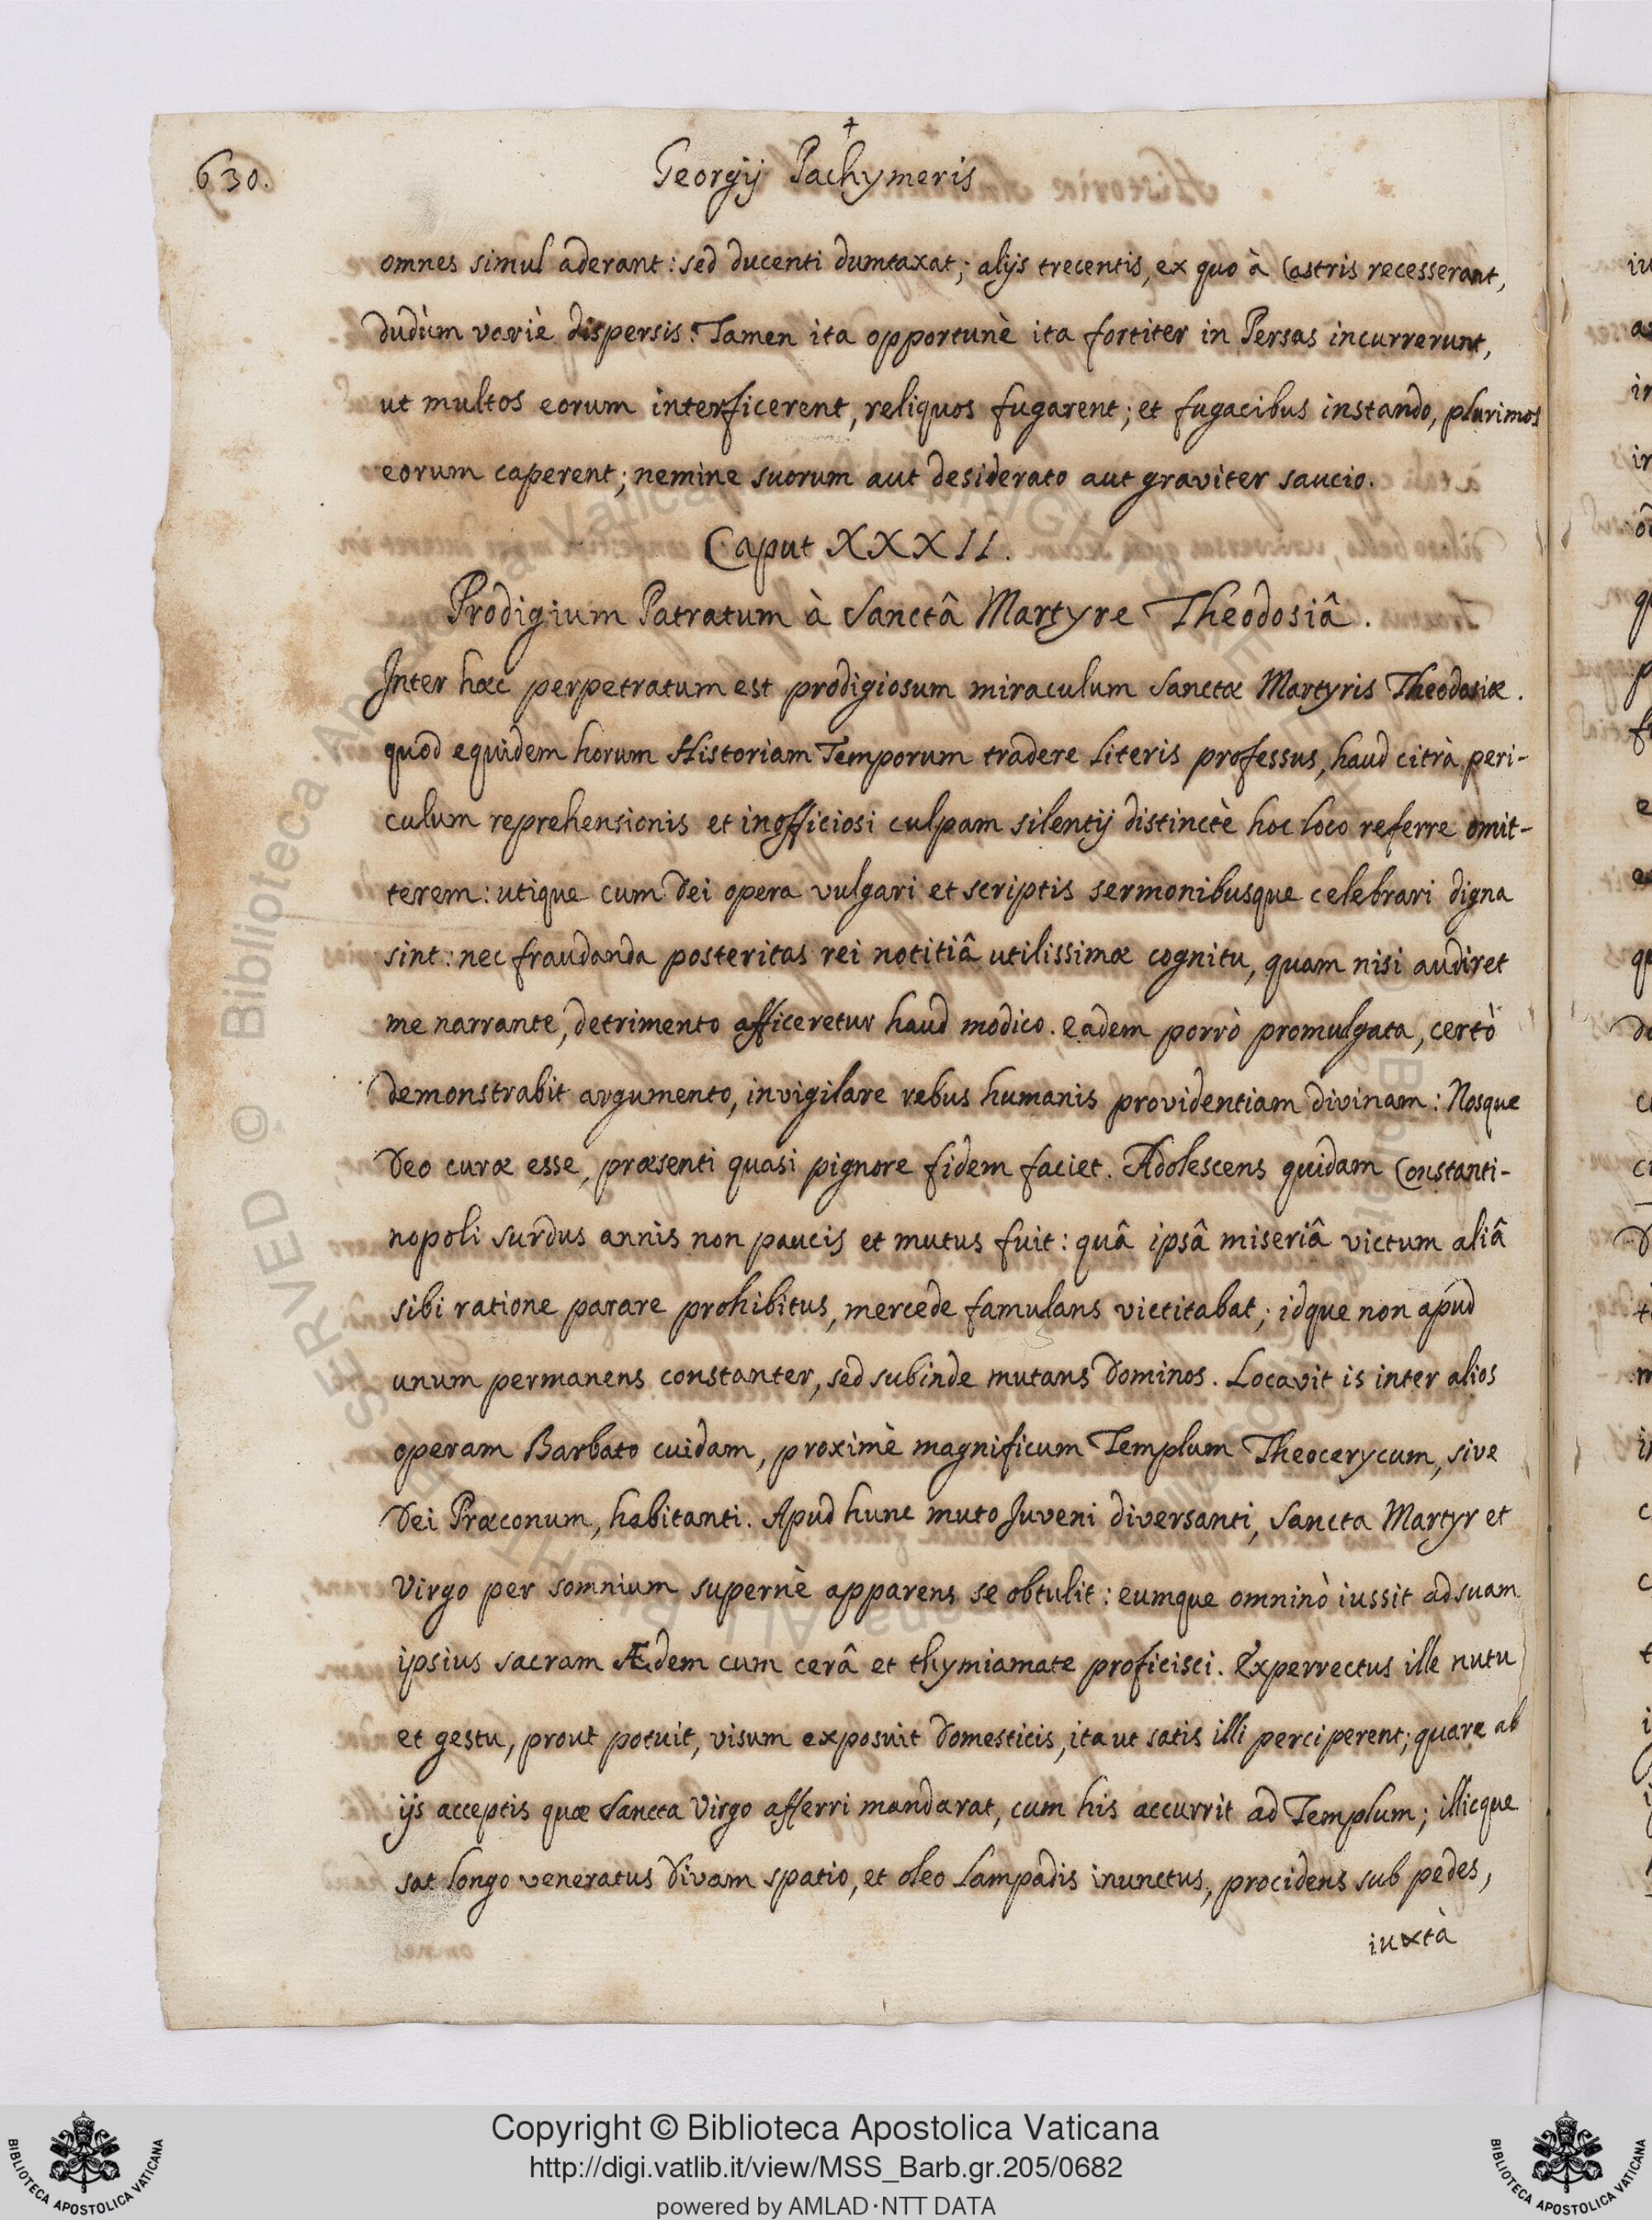 630.
+
Georgij Pachymeris
omnes simul aderant: sed ducenti dumtaxat; alijs trecentis, ex quo à Castris recesserant,
dudùm variè dispersis. Tamen ita opportunè ita fortiter in Persas incurrerunt,
ut multos eorum interficerent, reliquos fugarent; et fugacibus instando, plurimos
eorum caperent; nemine suorum aut desiderato aut graviter saucio.
Caput XXXII.
Prodigium Patratum à Sanctâ Martyre Theodosiâ.
Inter hæc perpetratum est prodigiosum miraculum Sanctæ Martyris Theodosiæ.
quod equidem horum Historiam Temporum tradere literis professus, haud citrà peri-
culum reprehensionis et inofficiosi culpam silentij distinctè hoc loco referre omit-
terem: utique cum Dei opera vulgari et scriptis sermonibusque celebrari digna
sint: nec fraudanda posteritas rei notitiâ utilissimæ cognitu, quam nisi audiret
me narrante, detrimento afficeretur haud modico. eadem porrò promulgata, certò
demonstrabit argumento, invigilare rebus humanis providentiam divinam: Nosque
Deo curæ esse, præsenti quasi pignore fidem faciet. Adolescens quidam Constanti-
nopoli surdus annis non paucis et mutus fuit: quâ ipsâ miseriâ victum aliâ
sibi ratione parare prohibitus, mercede famulans victitabat; idque non apud
unum permanens constanter, sed subinde mutans Dominos. Locavit is inter alios
operam Barbato cuidam, proximè magnificum Templum Theocerycum, sive
Dei Præconum, habitanti. Apud hunc muto Juveni diversanti, Sancta Martyr et
Virgo per somnium supernè apparens se obtulit: eumque omninò iussit ad suam
ipsius sacram Ædem cum cerâ et thymiamate proficisci. Experrectus ille nutu
et gestu, prout potuit, visum exposuit Domesticis, ita ut satis illi perciperent; quare ab
ijs acceptis quæ Sancta Virgo afferri mandarat, cum his accurrit ad Templum; illicque
sat longo veneratus Divam spatio, et oleo Lampadis inunctus, procidens sub pedes,
iuxtà
Copyright © Biblioteca Apostolica Vaticana
http://digi.vatlib.it/view/MSS_Barb.gr.205/0682
powered by AMLAD·NTT DATA
BIBLIOTECA APOSTOLICA VATICANA
BIBLIOTECA APOSTOLICA VATICANA